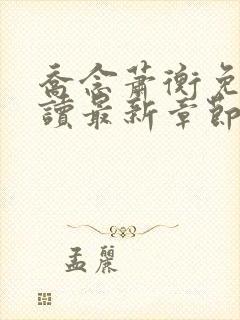 喬念蕭衡免
讀最新章節
孟麗